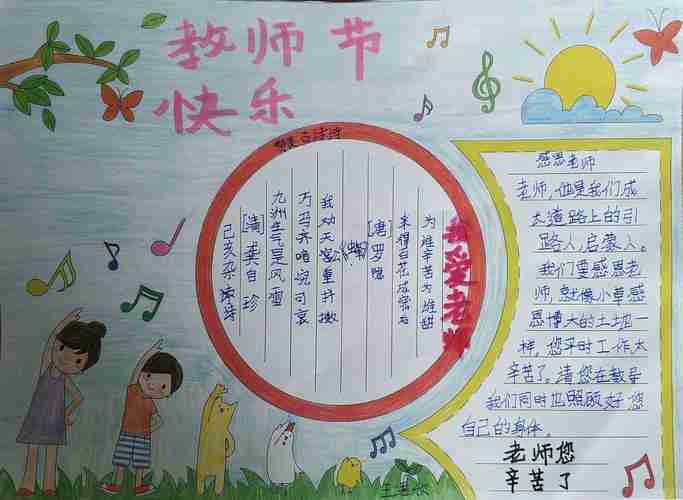 教师节
快乐
己亥杂诗
[清]龚自珍
九洲生气是风雷
万马齐喑究可哀
我劝天公重抖擞
[唐]罗隐
采得百花成蜜后
为谁辛苦为谁甜
我爱老师
感恩老师
老师,也是我们成
长道路上的引
路人,启蒙人。
我们要感恩老
师,就像小草感
恩博大的土地一
样,您平时工作太
辛苦了,请您在教导
我们同时也照顾好您
自己的身体。
老师您
辛苦了